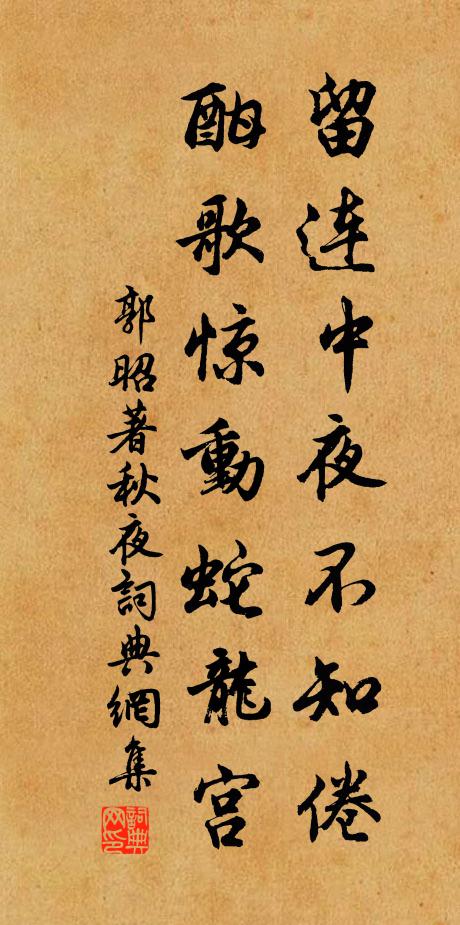 留连中夜不知倦
酣歌惊動蛇龍宫
郭昭著秋夜詞典網集
詞典网印